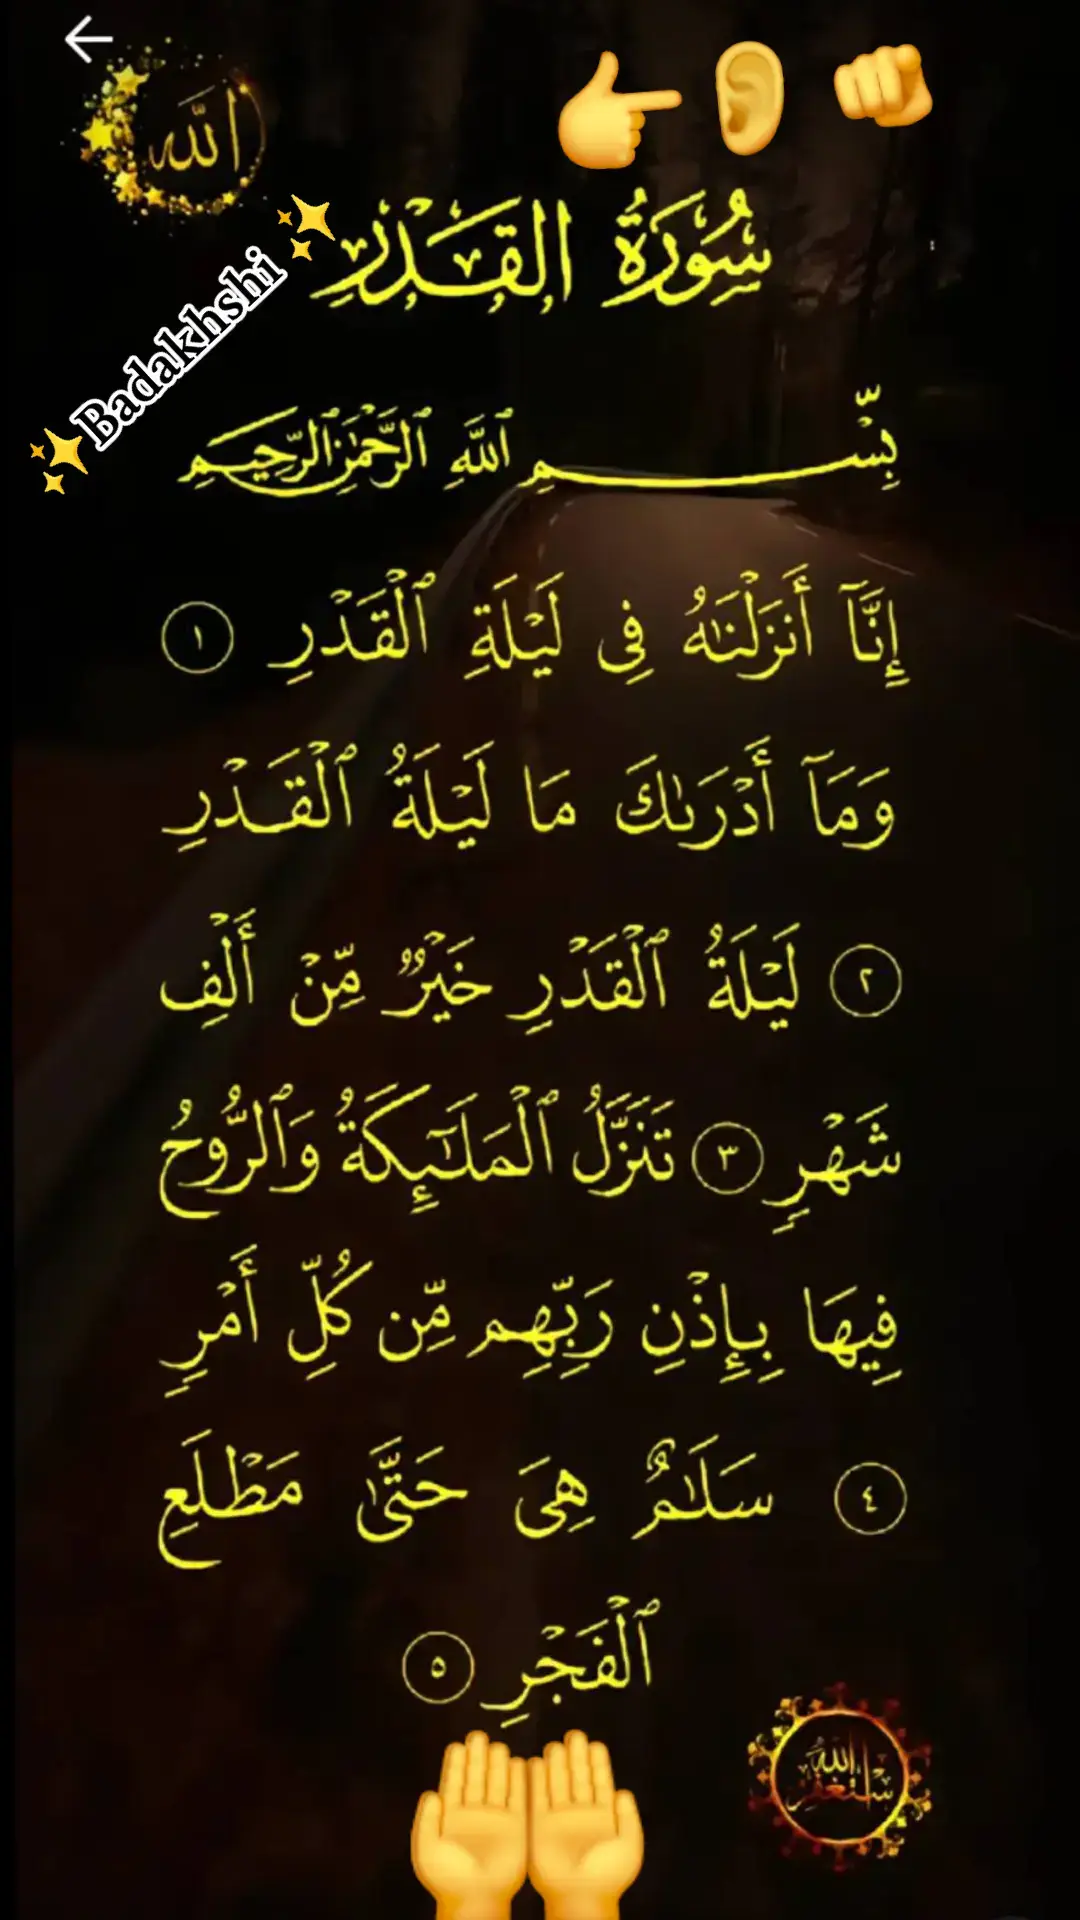 الله
سُورَةُ الْقَدْرِ
Badakhshi
بِسْمِ ٱللَّهِ ٱلرَّحْمَٰنِ ٱلرَّحِيمِ
إِنَّآ أَنزَلْنَٰهُ فِى لَيْلَةِ ٱلْقَدْرِ ١
وَمَآ أَدْرَىٰكَ مَا لَيْلَةُ ٱلْقَدْرِ
٢ لَيْلَةُ ٱلْقَدْرِ خَيْرٌ مِّنْ أَلْفِ
شَهْرٍ ٣ تَنَزَّلُ ٱلْمَلَٰٓئِكَةُ وَٱلرُّوحُ
فِيهَا بِإِذْنِ رَبِّهِم مِّن كُلِّ أَمْرٍ
٤ سَلَٰمٌ هِىَ حَتَّىٰ مَطْلَعِ
ٱلْفَجْرِ ٥
استغفر الله